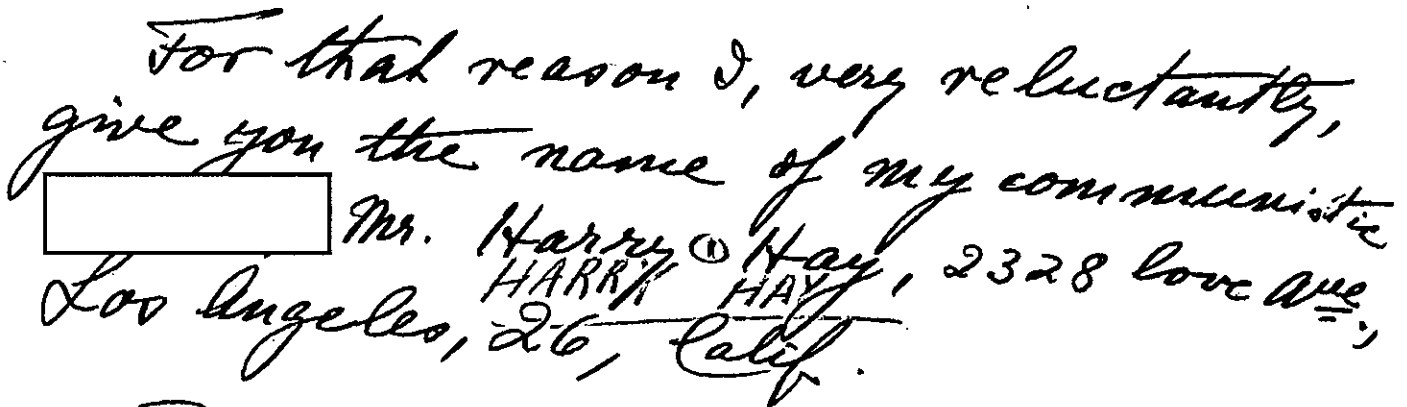 For that reason I, very reluctantly,
give you the name of my communistic
Mr. Harry ① Hay, 2328 Cove Ave.,
HARRY HAY
Los Angeles, 26, Calif.